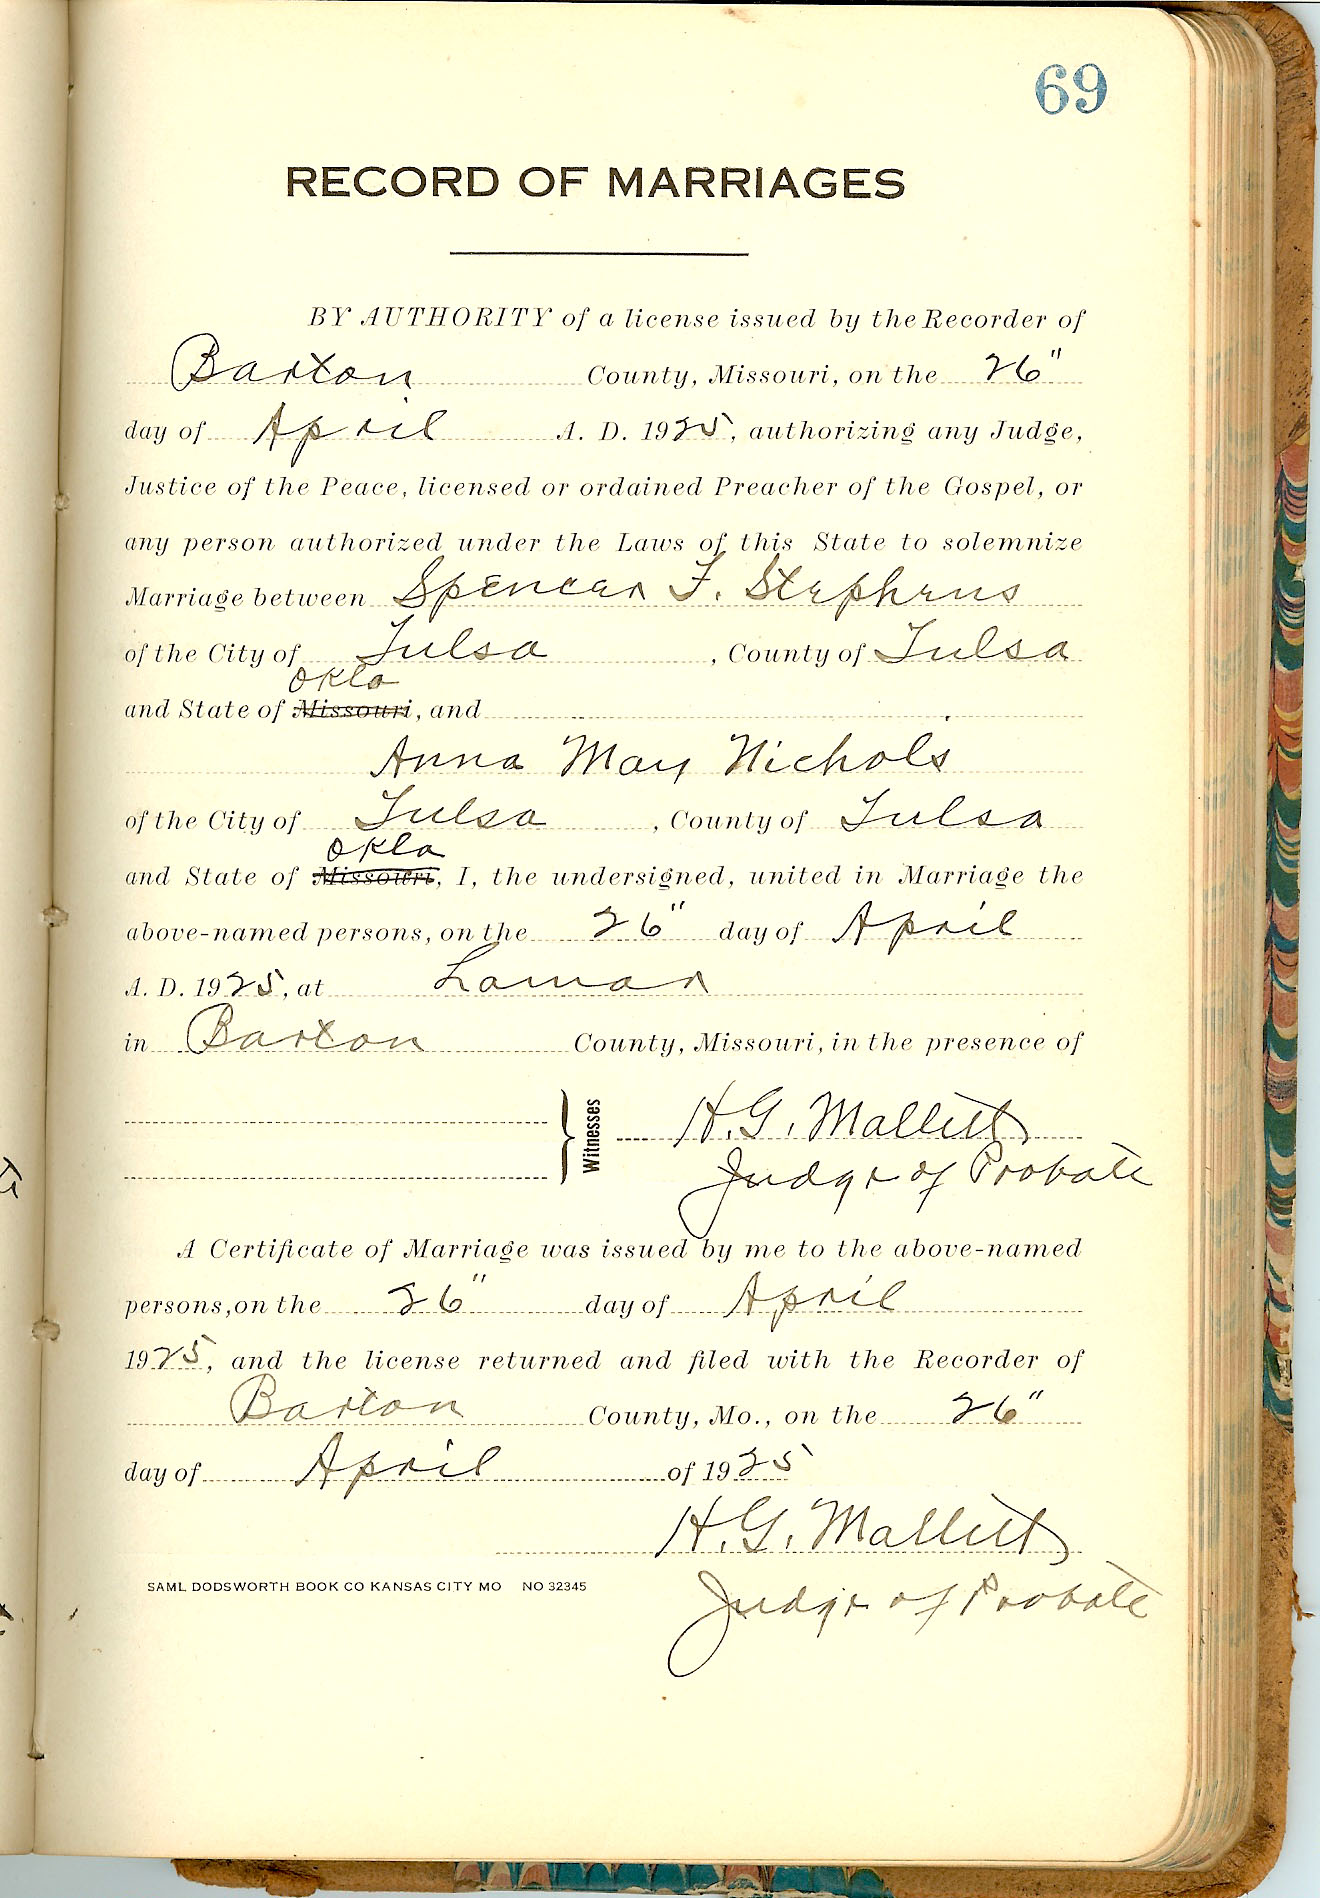 69
RECORD OF MARRIAGES
BY AUTHORITY of a license issued by the Recorder of
Barton County, Missouri, on the 26"
day of April A. D. 1925, authorizing any Judge,
Justice of the Peace, licensed or ordained Preacher of the Gospel, or
any person authorized under the Laws of this State to solemnize
Marriage between Spencer F. Stephens
of the City of Tulsa, County of Tulsa
Okla
and State of Missouri, and
Anna May Nichols
of the City of Tulsa, County of Tulsa
Okla
and State of Missouri, I, the undersigned, united in Marriage the
above-named persons, on the 26" day of April
A. D. 1925, at Lamar
in Barton County, Missouri, in the presence of
Witnesses H. G. Mallitt
Judge of Probate
A Certificate of Marriage was issued by me to the above-named
persons, on the 26" day of April
1925, and the license returned and filed with the Recorder of
Barton County, Mo., on the 26"
day of April of 1925
H. G. Mallitt
SAML DODSWORTH BOOK CO KANSAS CITY MO NO 32345
Judge of Probate